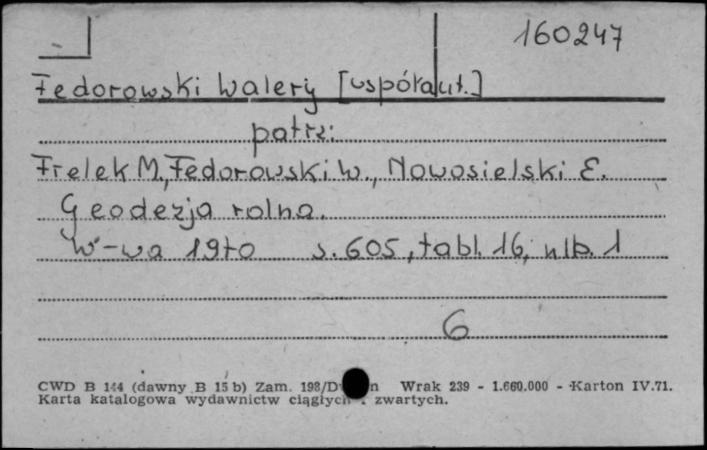 160247
Fedorowski Walery [współaut.]
patrz:
Frelek M., Fedorowski W., Nowosielski E.
Geodezja rolna.
W-wa 1970 s. 605, tabl. 16, nlb. 1
6
CWD B 144 (dawny B 15 b) Zam. 198/D Wrak 239 - 1.660.000 - Karton IV.71.
Karta katalogowa wydawnictw ciągłych i zwartych.